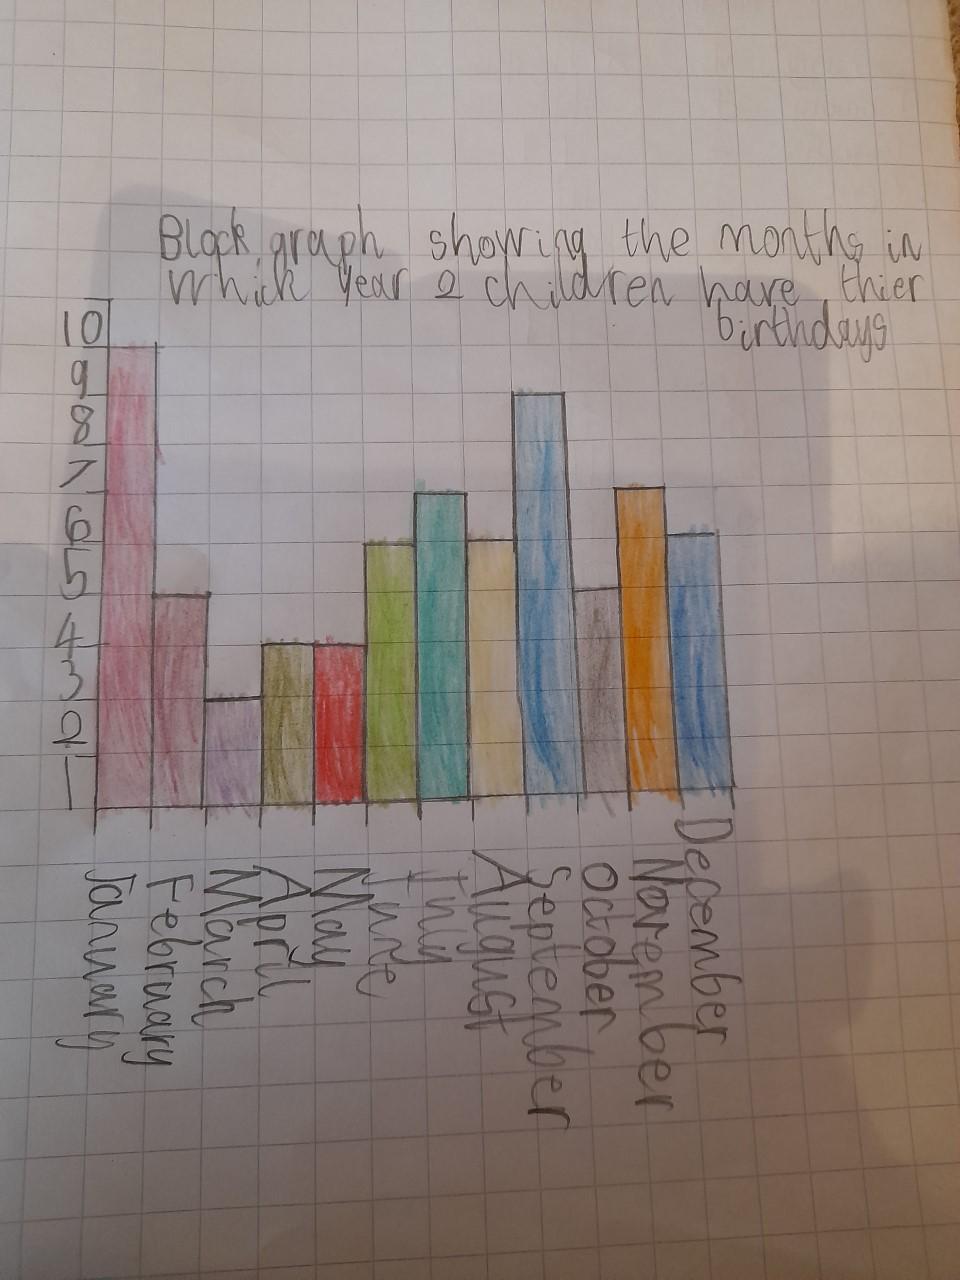 Block graph showing the months in
which Year 2 children have thier
birthdays
10
9
8
7
6
5
4
3
2
1
January
February
March
April
May
June
July
August
September
October
November
December